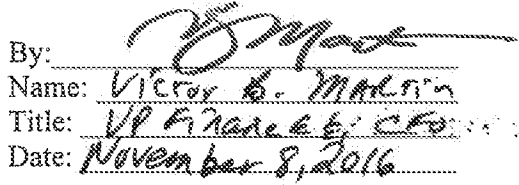 By:
Name: Victor B. Martin
Title: VP Finance & CFO
Date: November 8, 2016